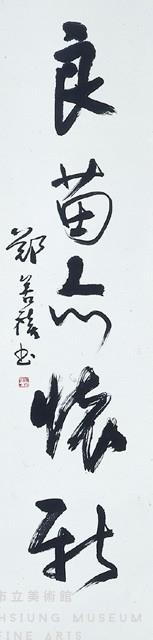 良苗亦懷新
鄭善禧書
市立美術館
HSIUNG MUSEUM
FINE ARTS